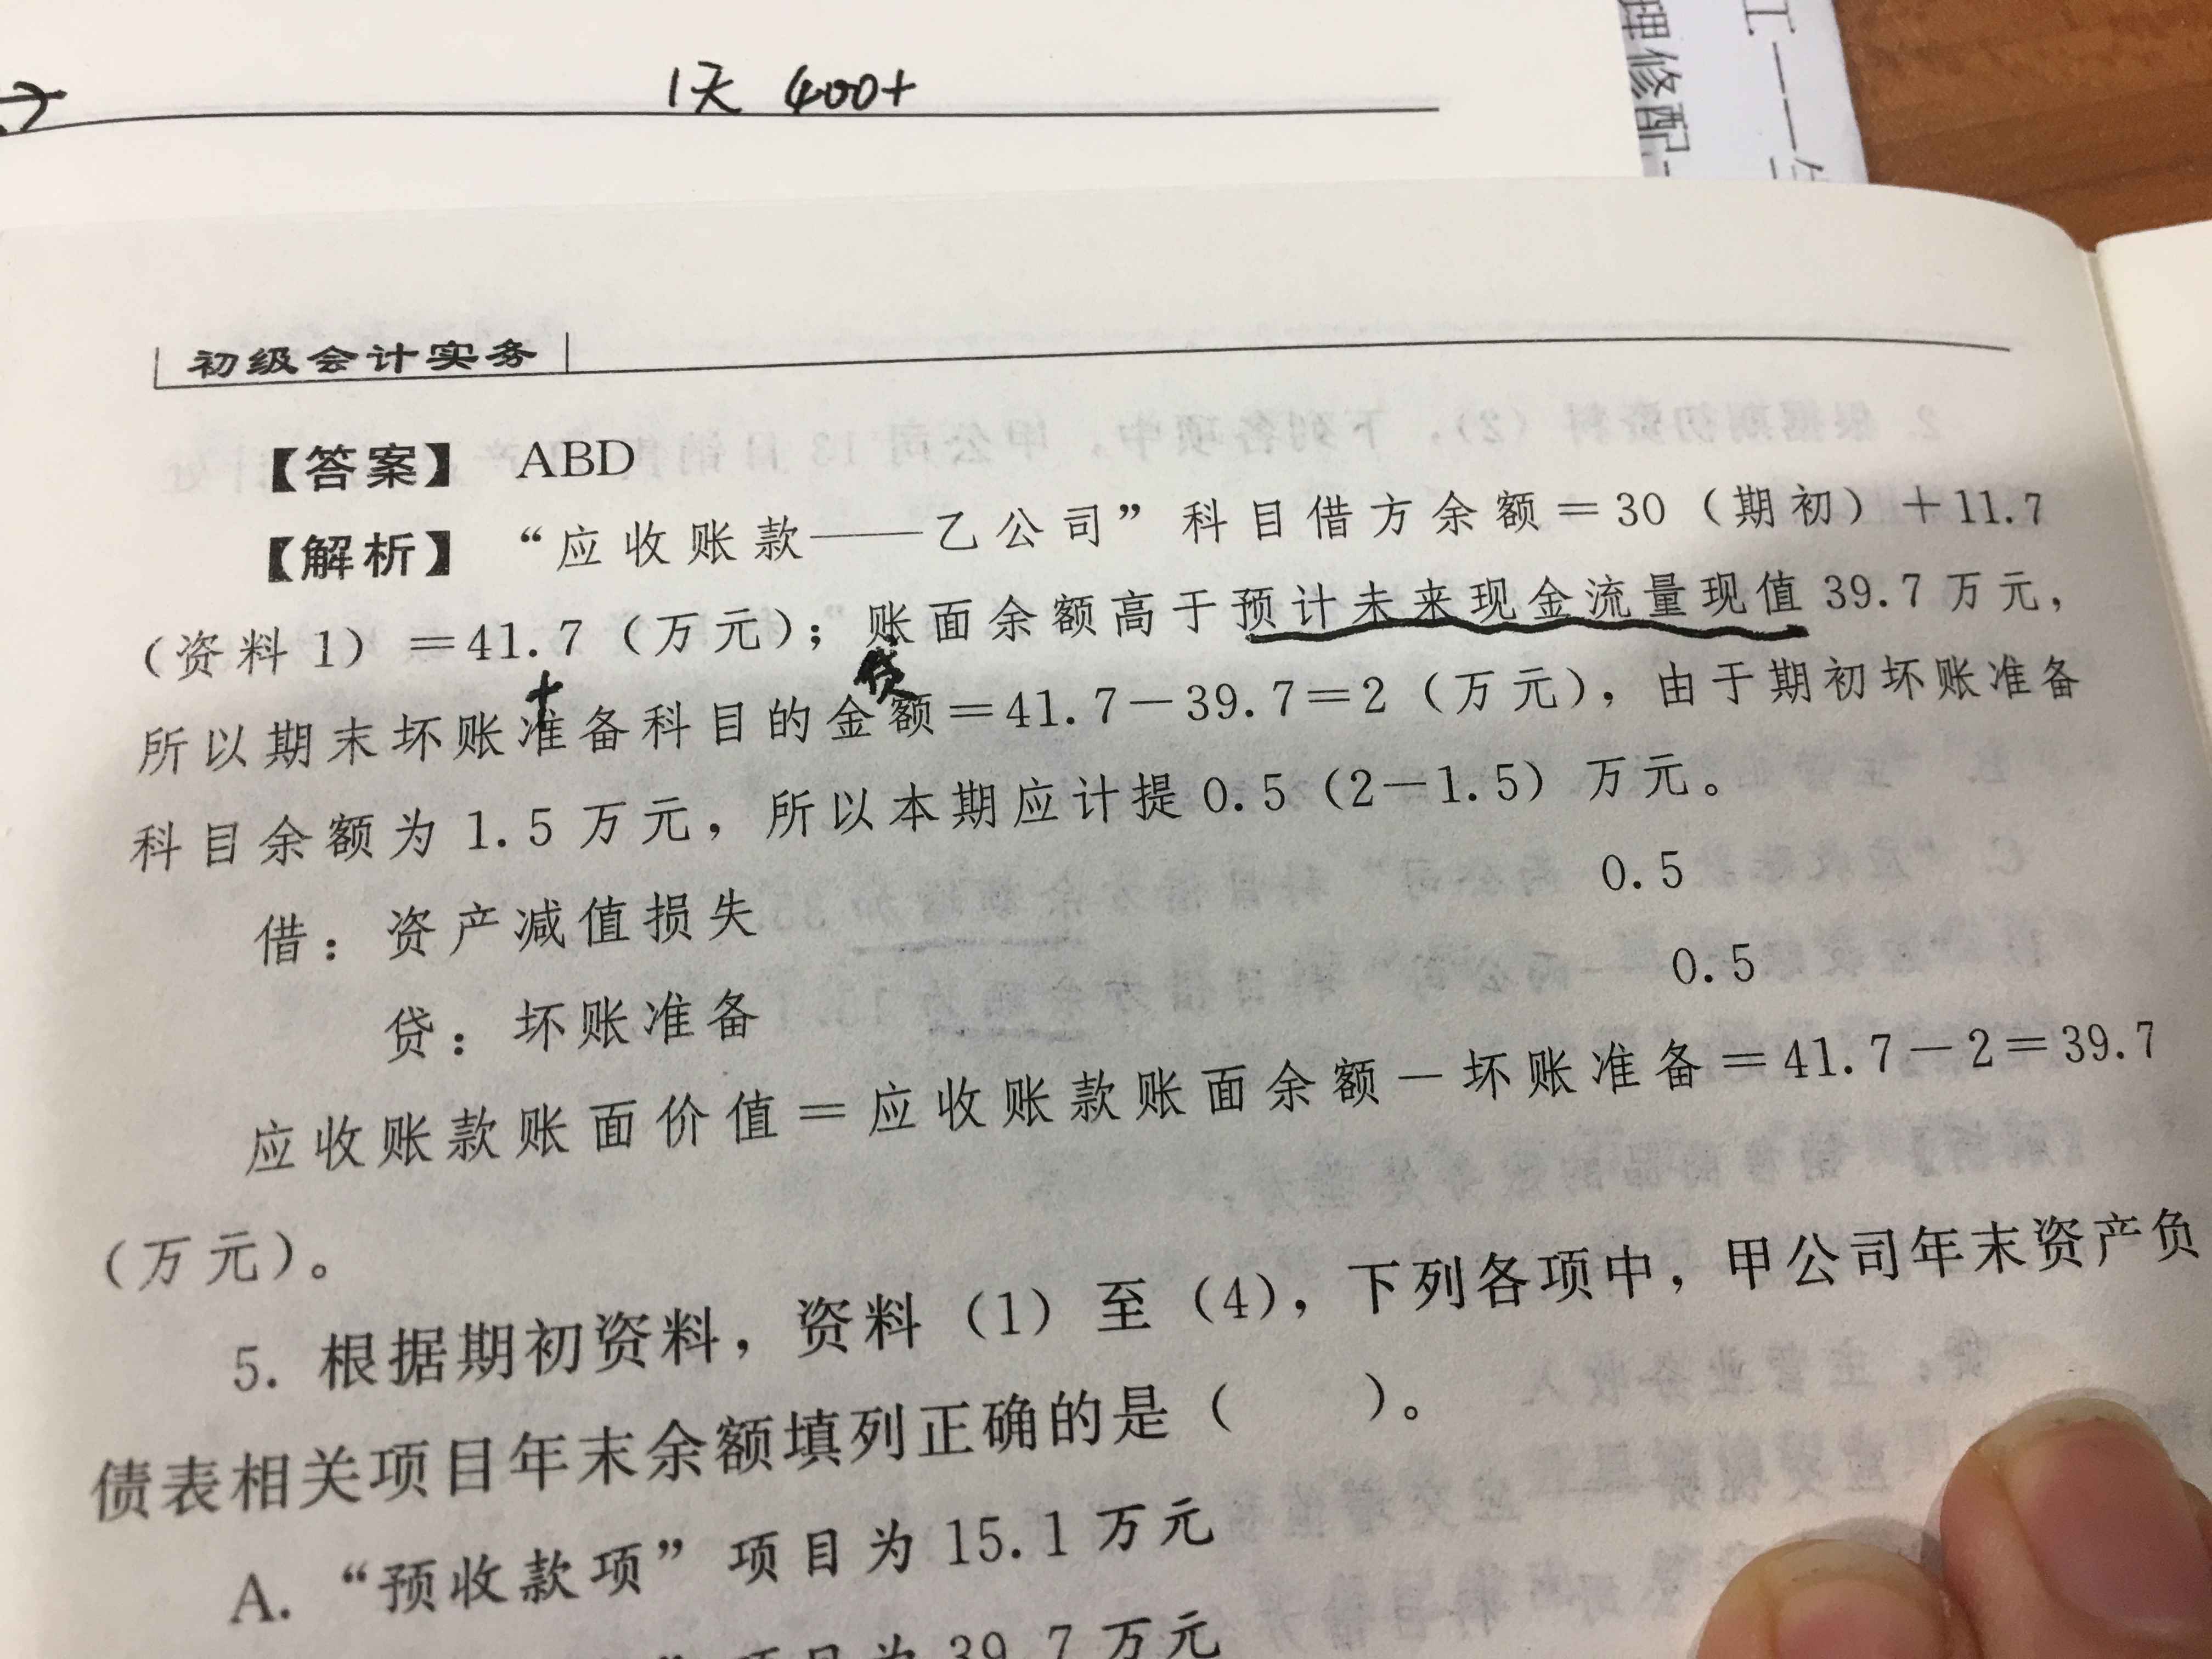 理修配
工——生
1天 400+
初级会计实务
【答案】 ABD
【解析】 “应收账款——乙公司”科目借方余额＝30（期初）＋11.7
（资料1）＝41.7（万元）；账面余额高于预计未来现金流量现值39.7万元，
贷
所以期末坏账准备科目的金额＝41.7－39.7＝2（万元），由于期初坏账准备
科目余额为1.5万元，所以本期应计提0.5（2－1.5）万元。
借：资产减值损失 0.5
贷：坏账准备 0.5
应收账款账面价值＝应收账款账面余额－坏账准备＝41.7－2＝39.7
（万元）。
5. 根据期初资料，资料（1）至（4），下列各项中，甲公司年末资产负
债表相关项目年末余额填列正确的是（ ）。
A. “预收款项”项目为15.1万元
”项目为39.7万元